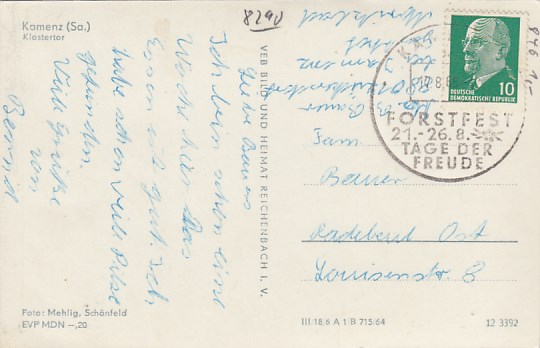 Kamenz (Sa.)
Klostertor
8290
Liebe Bauers
Ich bin schon eine
Woche hier. Das
Essen ist gut. Ich
habe schon viele Pilze
gefunden.
Viele Grüße
von
Bernd
Foto: Mehlig, Schönfeld
EVP MDN –,20
VEB BILD UND HEIMAT REICHENBACH I. V.
III/18/6 A 1 B 715/64
12 3392
DEUTSCHE
DEMOKRATISCHE REPUBLIK
10
FORSTFEST
21.-26.8.
TAGE DER
FREUDE
Fam
Bauer
Radebeul Ost
Louisenstr. 8